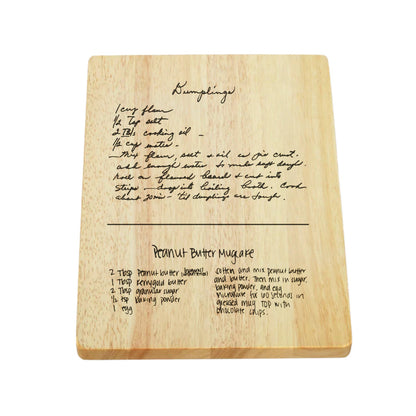 Dumplings
1 cup flour
½ Tsp salt
2 Tbls cooking oil —
½ cup water —
— Mix flour, salt & oil as pie crust.
add enough water to make soft dough.
Roll on floured board & cut into
strips — drop into boiling broth. Cook
about 20 min — 'til dumpling are tough.
Peanut Butter Mugcake
2 Tbsp Peanut butter
1 Tbsp Kerrygold butter
2 Tbsp granular sugar
½ tsp baking powder
1 egg
Soften and mix peanut butter
and butter. Then mix in sugar,
baking powder, and egg
Microwave for 60 seconds in
greased mug. TOP with
chocolate chips.